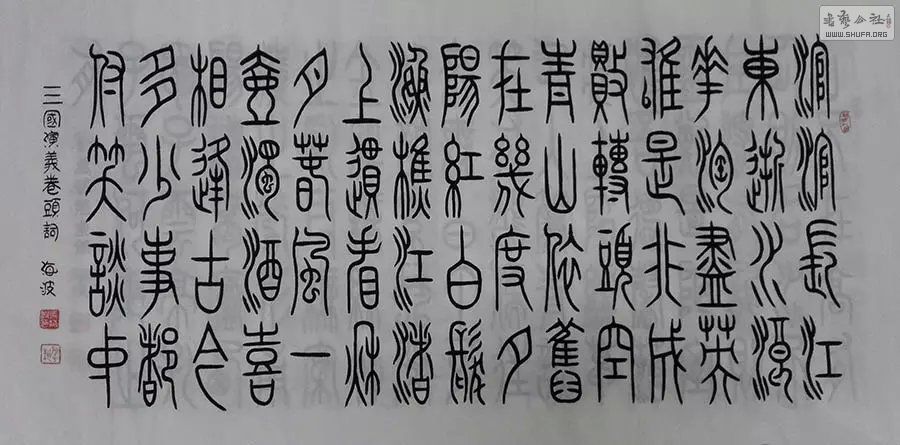 滾滾長江
東逝水浪
花淘盡英
雄是非成
敗轉頭空
青山依舊
在幾度夕
陽紅白髮
漁樵江渚
上還看秋
月春風一
壺濁酒喜
相逢古今
多少事都
付笑談中
三國演義卷頭詞 海波
書藝公社
WWW.SHUFA.ORG